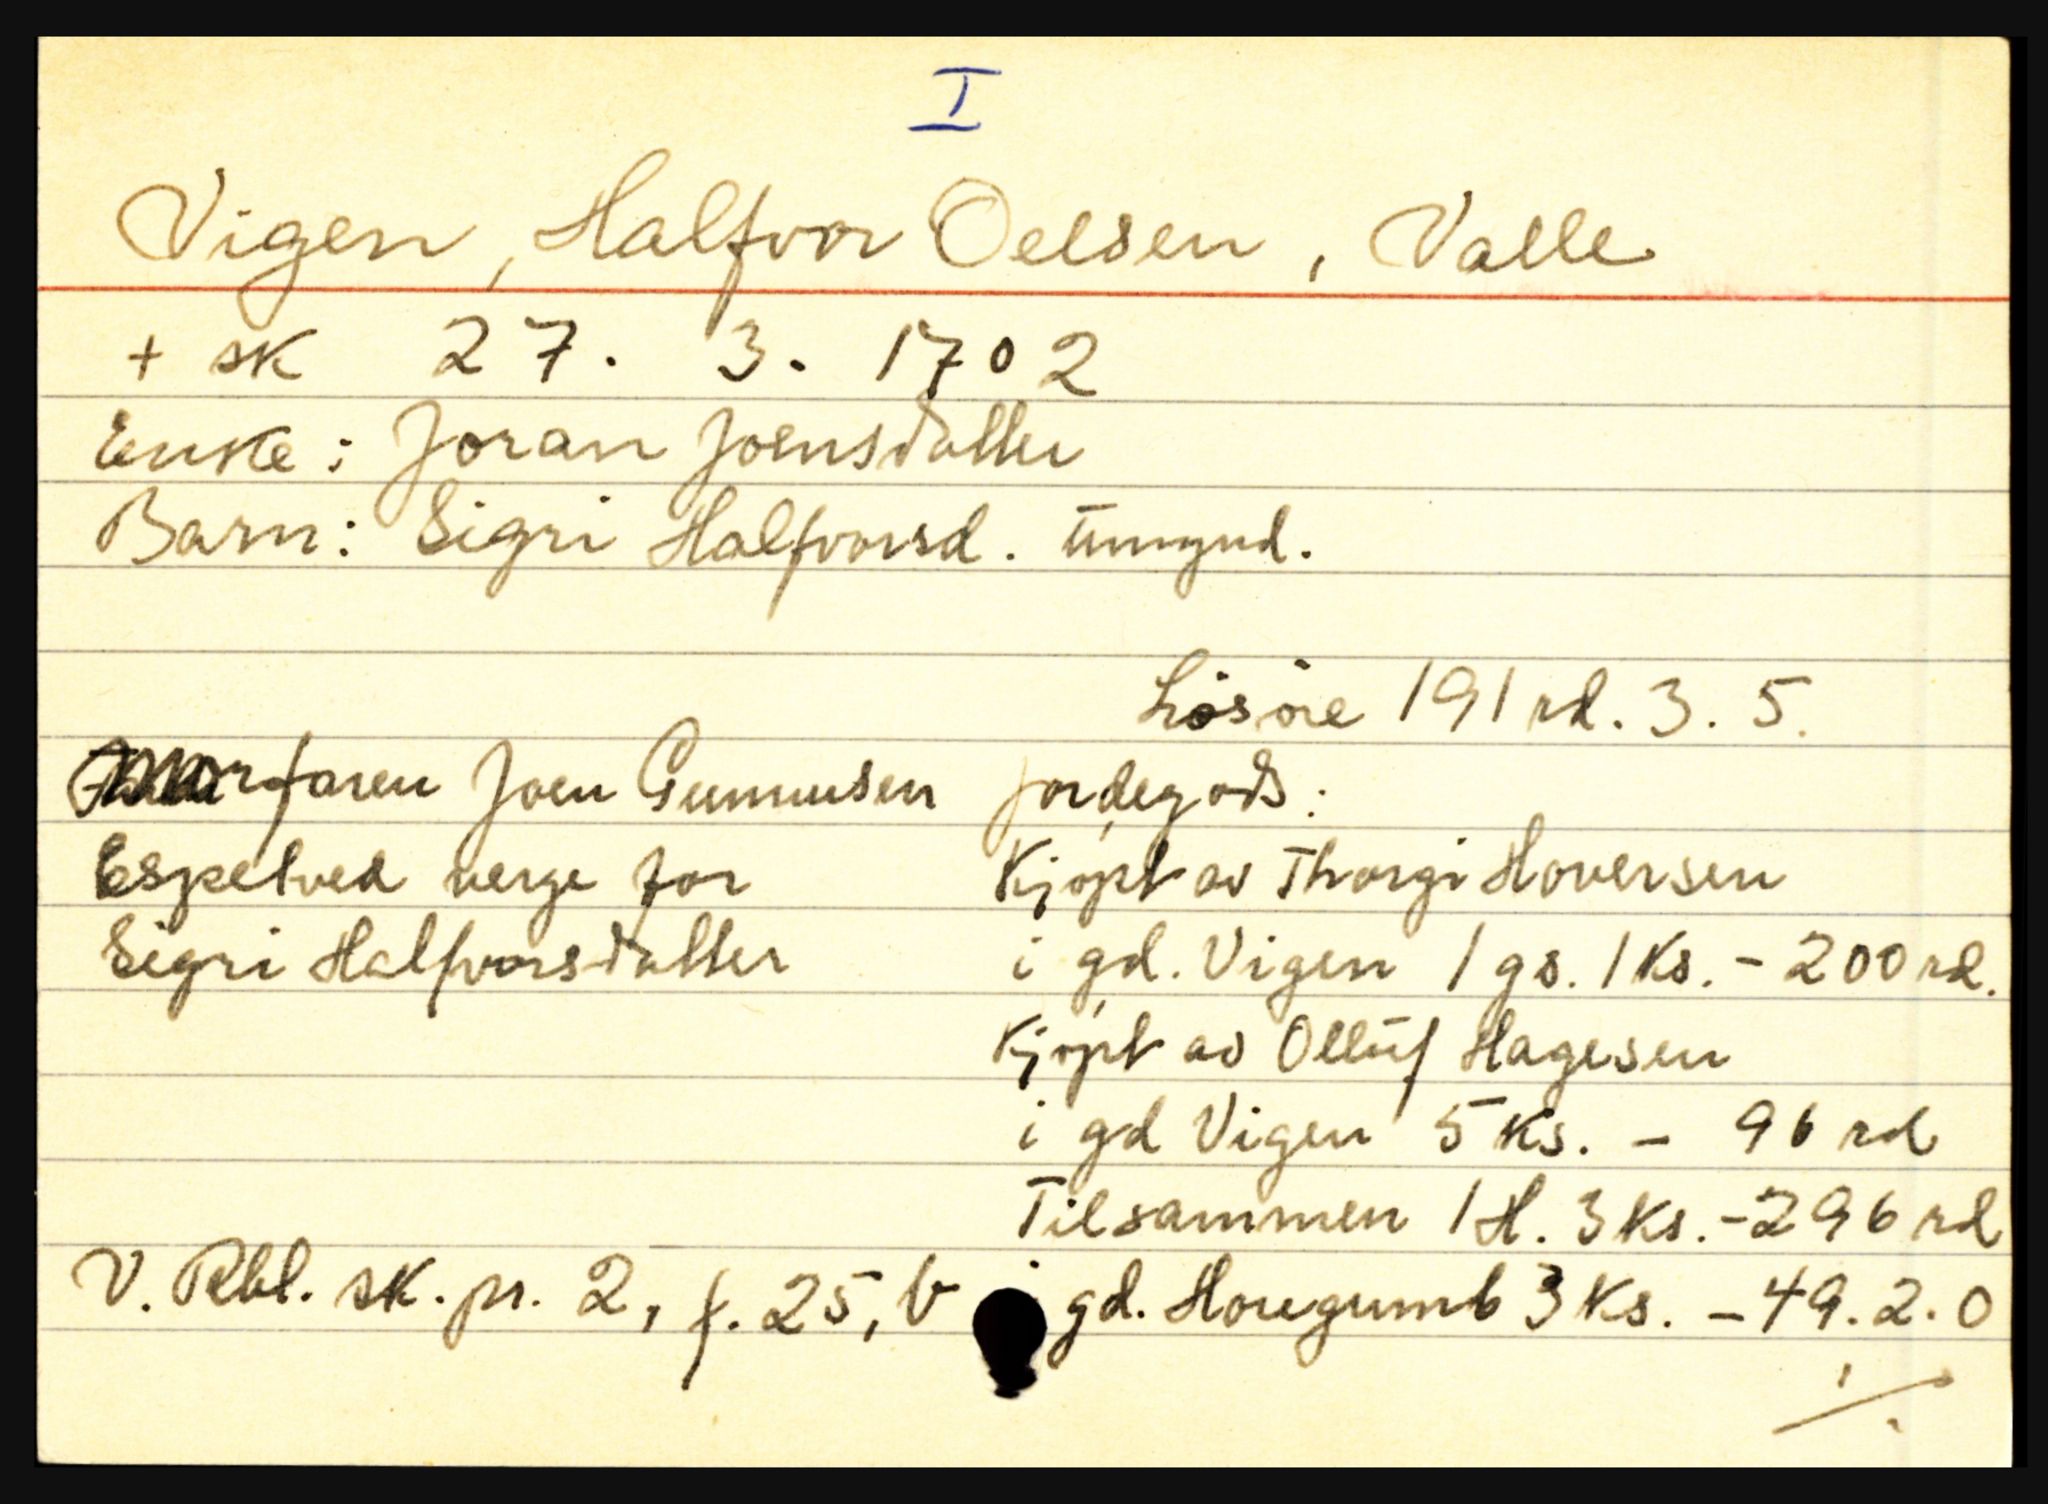 I
Vigen, Halfvor Oelsen, Valle
+ sk 27. 3. 1702
Enke: Joran Joensdatter
Barn: Sigri Halfvorsd. umynd.
Lösöre 191 rd. 3. 5.
morfaren Joen Gunnusen
Espetved verge for
Sigri Halfvorsdatter
Jordegods:
Kjöpt av Thorgi Hoversen
i gd. Vigen 1 gs. 1 Ks. - 200 rd.
Kjöpt av Olluf Hagesen
i gd Vigen 5 Ks. - 96 rd
Tilsammen 1 H. 3 Ks. - 296 rd
i gd. Horegumb 3 Ks. - 49. 2. 0
V. Rbl. sk. pr. 2, f. 25, b